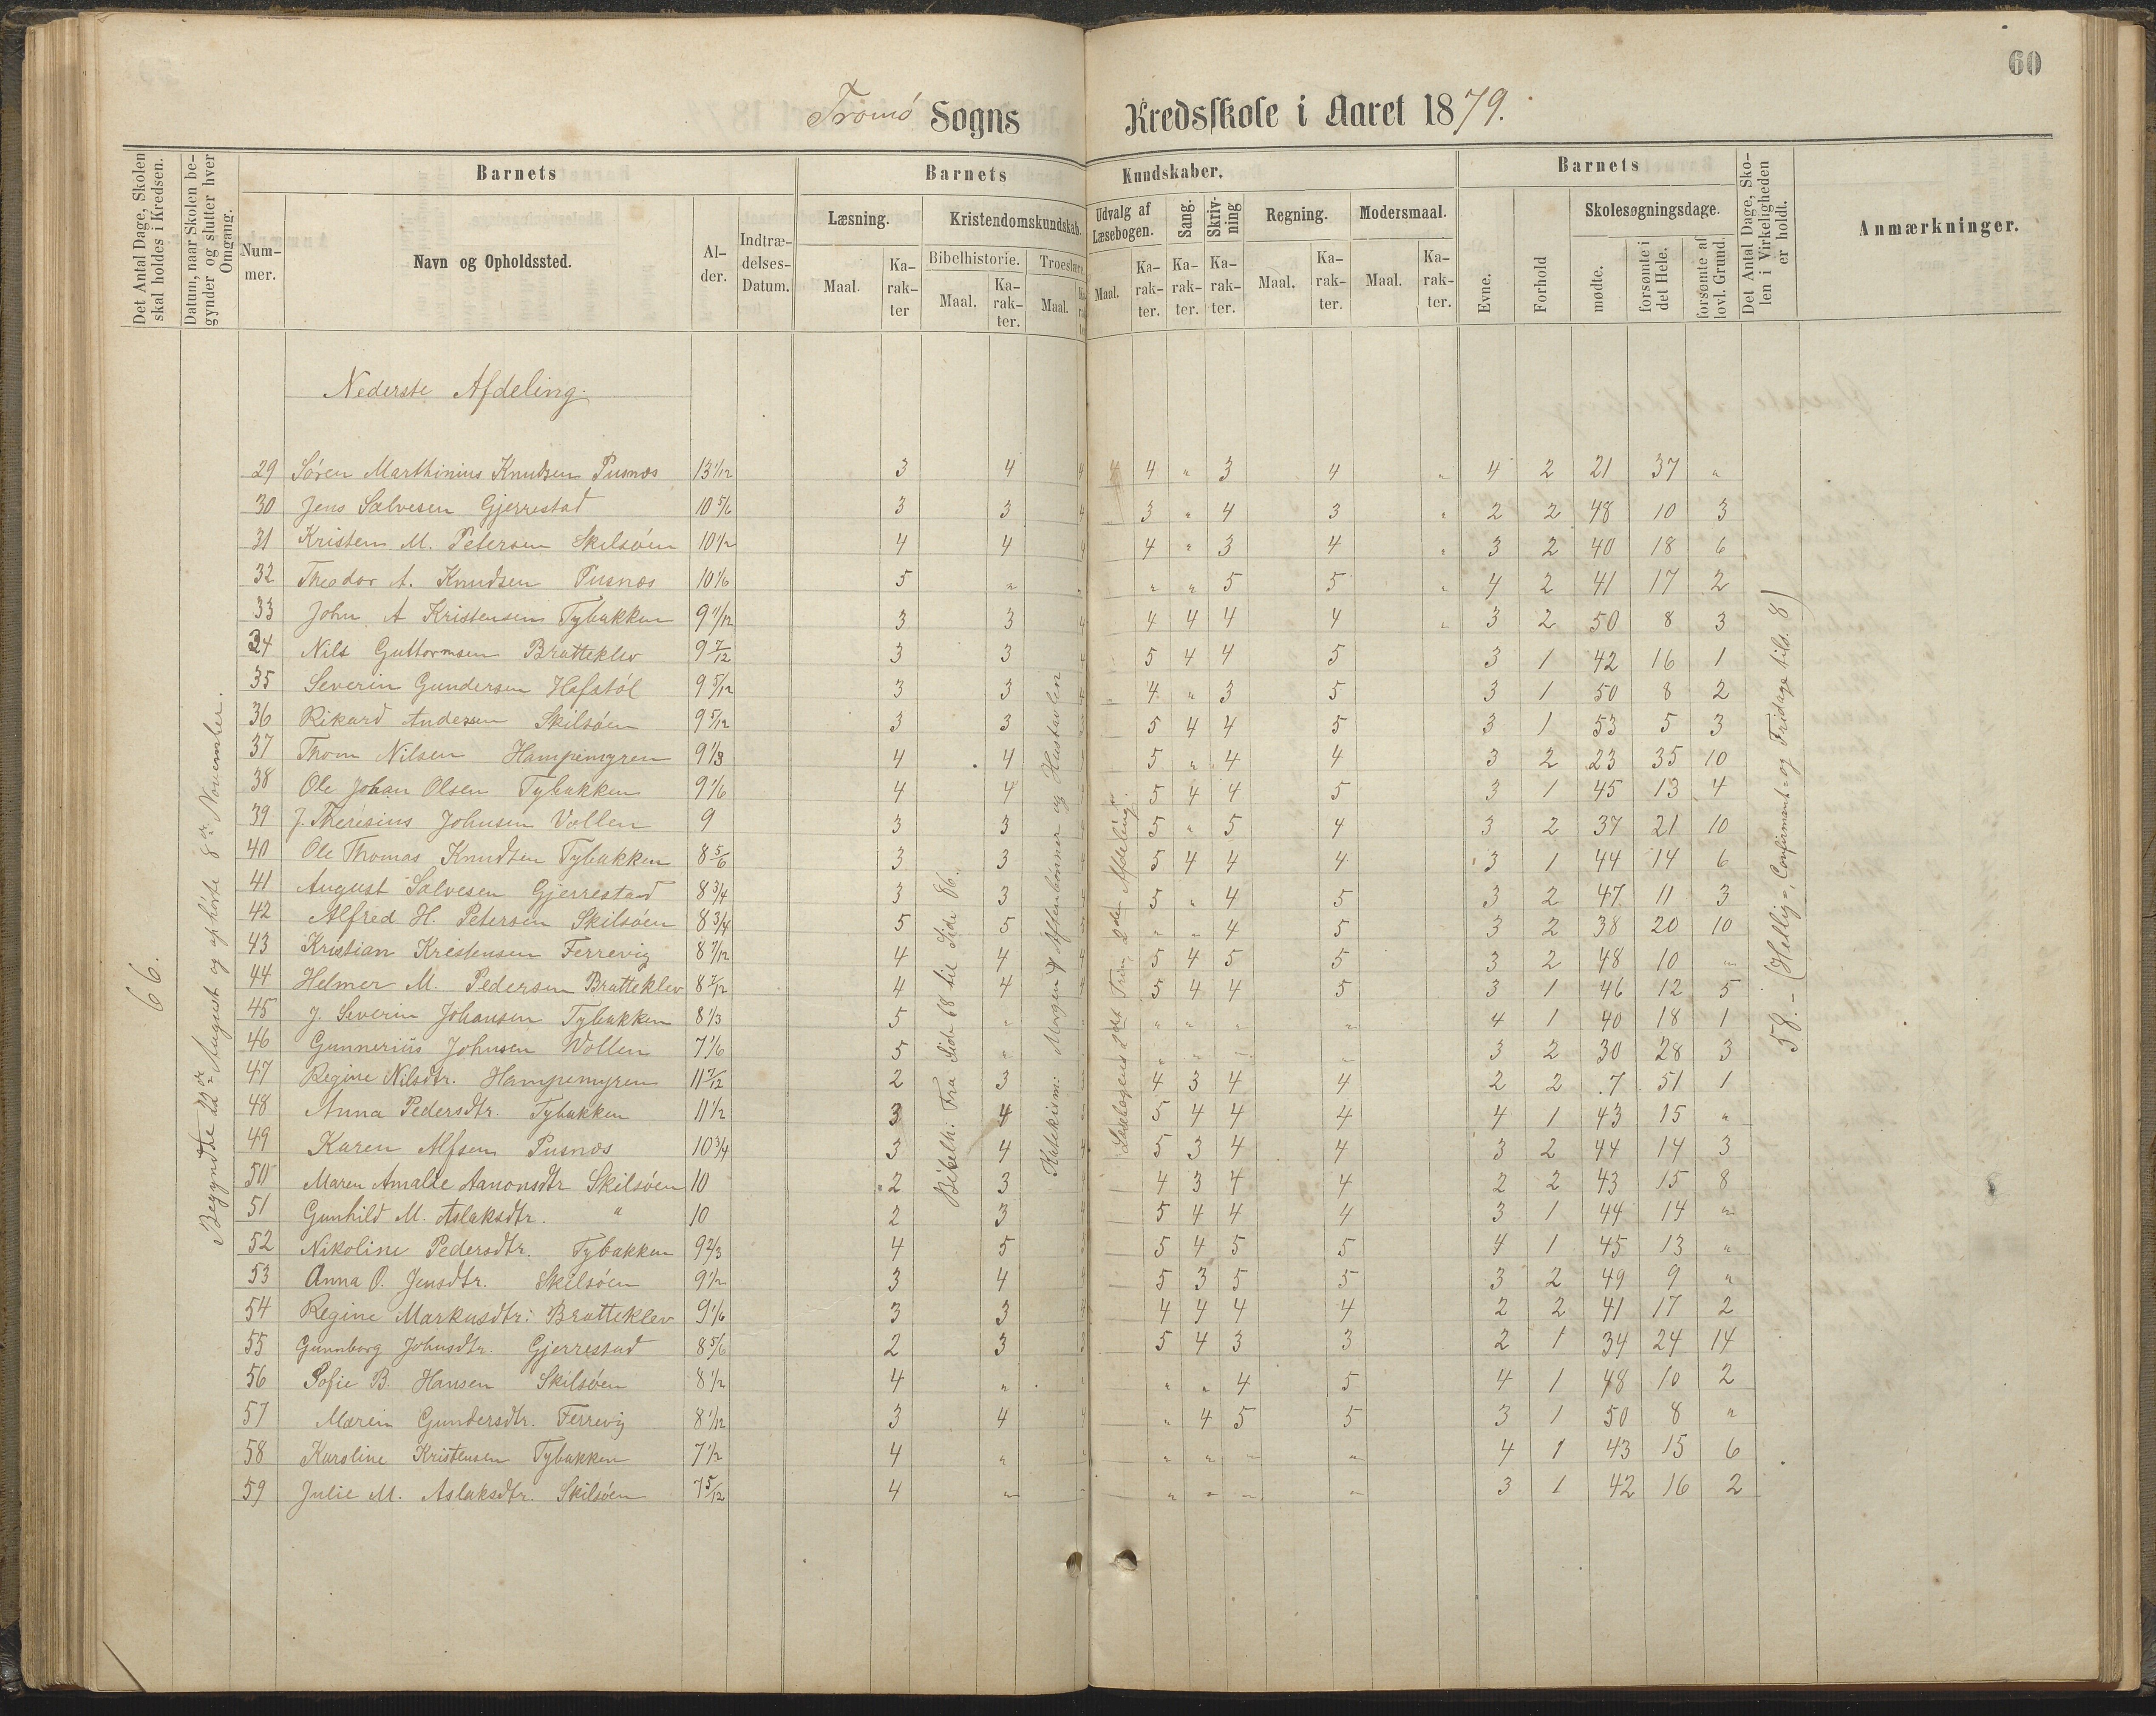 60
Tromø Sogns Kredsskole i Aaret 1879.
Det Antal Dage, Skolen skal holdes i Kredsen.
Datum, naar Skolen begynder og slutter hver Omgang.
Barnets
Nummer.
Navn og Opholdssted.
Alder.
Indtrædelses-Datum.
Barnets Kundskaber.
Læsning.
Maal.
Karakter
Kristendomskundskab.
Bibelhistorie.
Maal.
Karakter.
Troeslære.
Maal.
Karakter
Udvalg af Læsebogen.
Maal.
Karakter.
Sang.
Karakter.
Skrivning
Karakter.
Regning.
Maal.
Karakter.
Modersmaal.
Maal.
Karakter.
Barnets
Evne.
Forhold
Skolesøgningsdage.
mødte.
forsømte i det Hele.
forsømte af lovl. Grund.
Det Antal Dage, Skolen i Virkeligheden er holdt.
Anmærkninger.
Nederste Afdeling.
66.
Begyndte 22de August og ophörte 8de November.
Bibelh: Fra Side 68 til Side 86.
Katekism: Morgen og Aftenbønner og Hustavlen
Læsebogens 2det Trin, 2den Afdeling.
58.- (Hellig=, Confirmant= og Fridage tils. 8)
29 Søren Marthinius Knudsen Pusnæs 13 1/12 3 4 4 4 4 " 3 4 " 4 2 21 37 "
30 Jens Salvesen Gjerrestad 10 5/6 3 3 4 3 " 4 3 " 2 2 48 10 3
31 Kristen M. Petersen Skilsøen 10 1/2 4 4 4 4 " 3 4 " 3 2 40 18 6
32 Theodor A. Knudsen Pusnæs 10 1/6 5 " " " " 5 5 " 4 2 41 17 2
33 John A Kristensen Tybakken 9 11/12 3 3 4 4 4 4 4 " 3 2 50 8 3
34 Nils Guttormsen Bratteklev 9 7/12 3 3 4 5 4 4 5 3 1 42 16 1
35 Severin Gundersen Hafstøl 9 5/12 3 3 4 4 " 3 5 3 1 50 8 2
36 Rikard Andersen Skilsøen 9 5/12 3 3 5 4 4 5 3 1 53 5 3
37 Thom Nilsen Hampemyren 9 1/3 4 4 5 " 4 4 3 2 23 35 10
38 Ole Johan Olsen Tybakken 9 1/6 4 4 5 4 4 5 3 1 45 13 4
39 J. Therésius Johnsen Vollen 9 3 3 5 " 5 4 3 2 37 21 10
40 Ole Thomas Knudsen Tybakken 8 5/6 3 3 5 4 4 4 3 1 44 14 6
41 August Salvesen Gjerrestad 8 3/4 3 3 5 " 4 5 3 2 47 11 3
42 Alfred H. Petersen Skilsøen 8 3/4 5 5 " " 4 5 3 2 38 20 10
43 Kristian Kristensen Ferrevig 8 7/12 4 4 5 4 5 5 3 2 48 10 "
44 Helmer M. Pedersen Bratteklev 8 7/12 4 4 5 4 4 5 3 1 46 12 5
45 J. Severin Johansen Tybakken 8 1/3 5 " " " " " 4 1 40 18 1
46 Gunnerius Johnsen Wollen 7 1/6 5 " " " " " 3 2 30 28 3
47 Regine Nilsdtr. Hampemyren 11 7/12 2 3 4 3 4 4 2 2 7 51 1
48 Anna Pedersdtr. Tybakken 11 1/2 3 4 5 4 4 4 4 1 43 15 "
49 Karen Alfsen Pusnæs 10 3/4 3 4 4 5 3 4 4 3 2 44 14 3
50 Maren Amalie Aanonsdtr Skilsøen 10 2 3 4 3 4 4 2 2 43 15 8
51 Gunhild M. Aslaksdtr. " 10 2 3 5 4 4 4 3 1 44 14 "
52 Nikoline Pedersdtr. Tybakken 9 2/3 4 5 5 4 5 5 4 1 45 13 "
53 Anna O. Jensdtr. Skilsøen 9 1/2 3 4 4 5 3 5 5 3 2 49 9 "
54 Regine Markusdtr: Bratteklev 9 1/6 3 3 4 4 4 4 4 2 2 41 17 2
55 Gunnborg Johnsdtr. Gjerrestad 8 5/6 2 3 3 5 4 3 3 2 1 34 24 14
56 Sofie B. Hansen Skilsøen 8 1/2 4 " " " " 4 5 4 1 48 10 2
57 Maren Gundersdtr. Ferrevig 8 1/12 3 4 4 " 4 5 5 3 1 50 8 "
58 Karoline Kristensen Tybakken 7 1/2 4 " " " " " " 4 1 43 15 6
59 Julie M. Aslaksdtr. Skilsøen 7 5/12 4 " " " " " " 3 1 42 16 2